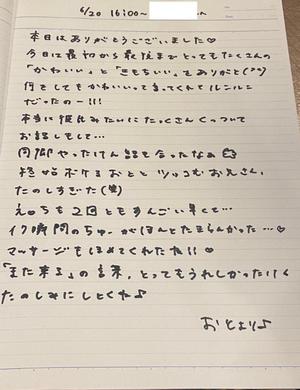 6/20 16:00〜
本日はありがとうございました♡
今日は最初から最後までとってもたくさんの
「かわいい」と「きもちいい」をありがと(^^)
何をしてもかわいいって言ってくれてルンルン
だったのー!!!
本当に彼氏みたいにたっくさんくっついて
お話しもして…
同郷やったけん話も合ったなあ
ボケる おとと ツッコむお兄さん、
たのしすぎた(笑)
えっちも2回ともすんごい早くて…
イク瞬間のちゅーがほんとたまらんかった…♡
マッサージもほめてくれたね!! ♡
「また来る」の言葉、とってもうれしかったけん
たのしみにしとくね♪
おとより♪